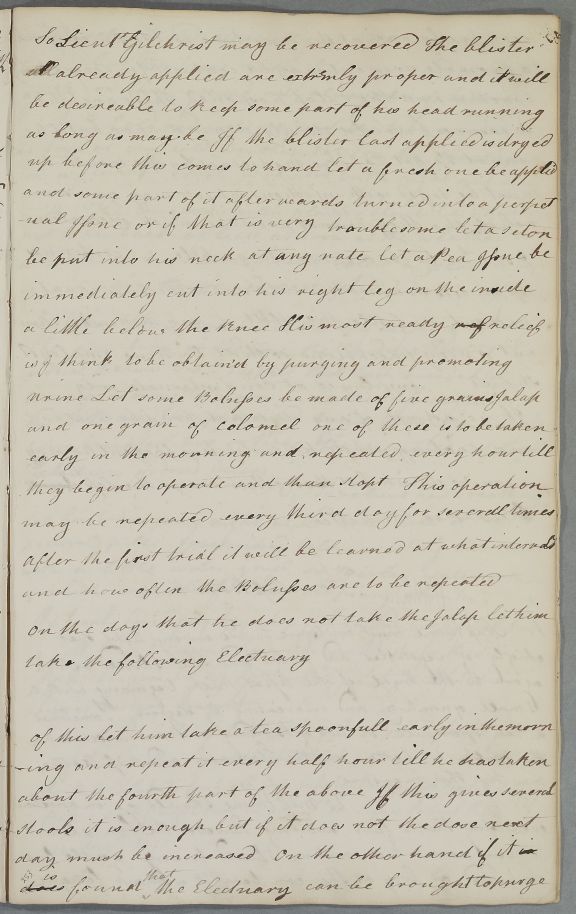 So Lieut Gilchrist may be recovered The blister
already applied are extremly proper and it will
be desireable to keep some part of his head running
as long as may be If the blister last applied is dryed
up before this comes to hand let a fresh one be applied
and some part of it afterwards turned into a perpet
ual Issue or if that is very troublesome let a seton
be put into his neck at any rate let a Pea Issue be
immediately cut into his right leg on the inside
a little below the Knee His most ready ref relief
is I think to be obtaind by purging and promoting
urine Let some Bolusses be made of five grains Jalap
and one grain of Colomel one of these is to be taken
early in the morning and repeated every hour till
they begin to operate and than stopt This operation
may be repeated every third day for severall times
after the first trial it will be learned at what intervals
and how often the Bolusses are to be repeated
On the days that he does not take the Jalap let him
take the following Electuary
Of this let him take a tea spoonfull early in the morn
-ing and repeat it every half hour till he has taken
about the fourth part of the above If this gives several
stools it is enough but if it does not the dose next
day must be increased On the other hand if it
is that
does found the Electuary can be brought to purge